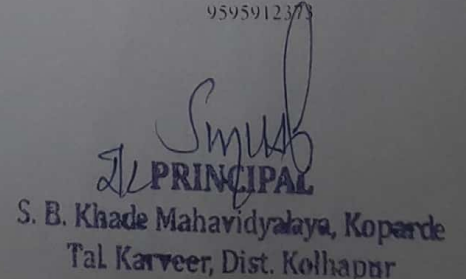 9595912373
PRINCIPAL
S. B. Khade Mahavidyalaya, Koparde
Tal. Karveer, Dist. Kolhapur